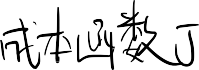 成本函数J